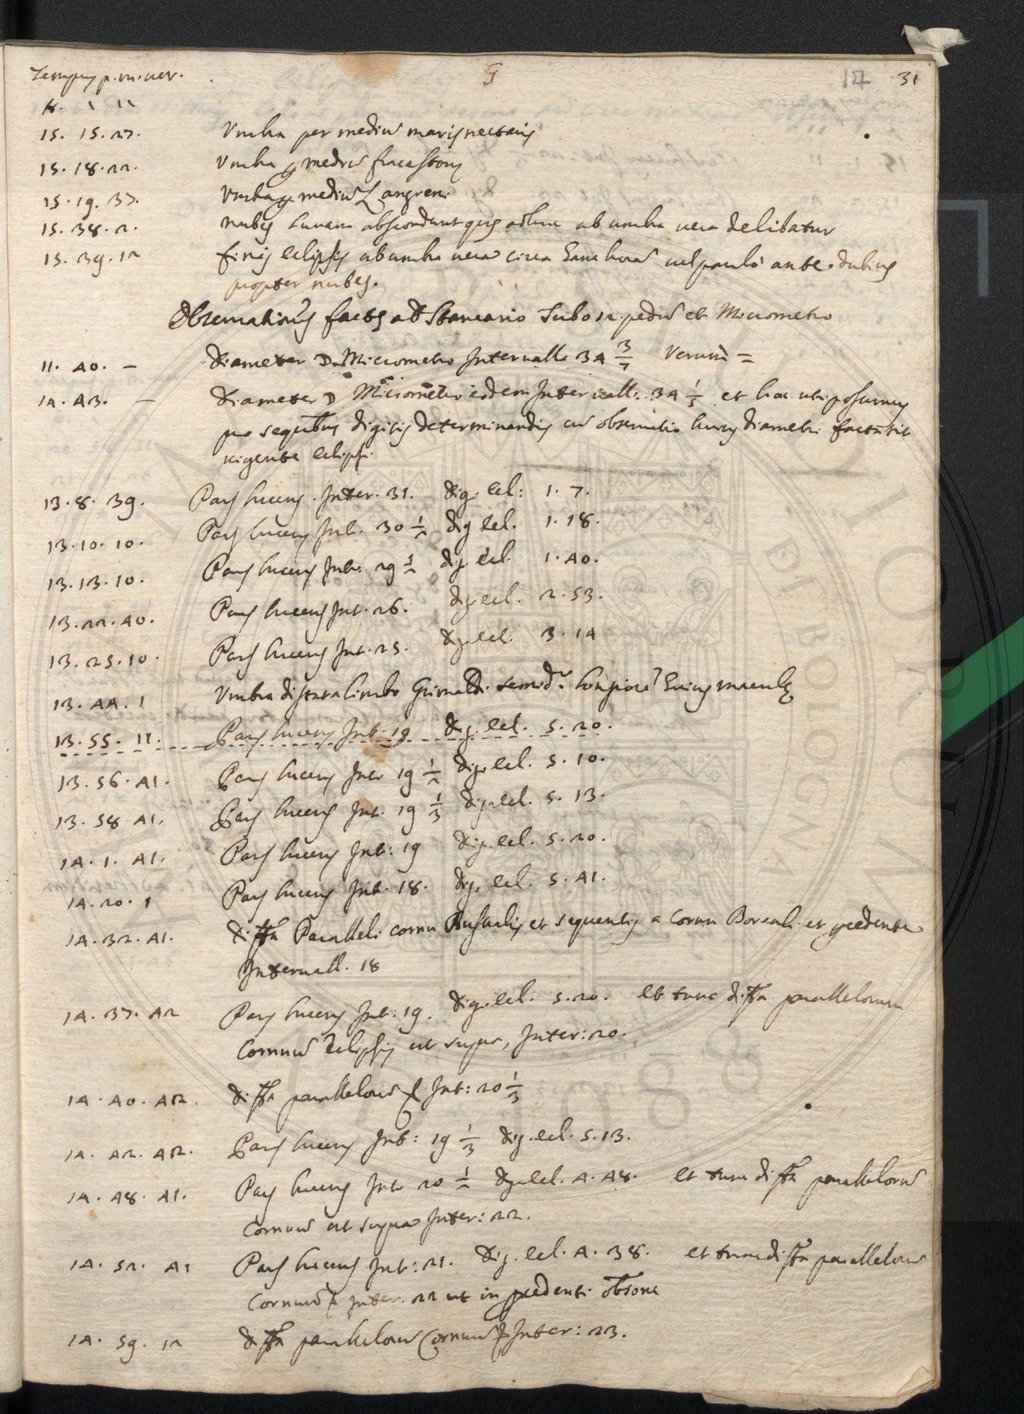 Tempus p. m. ver. G 14 31
H. ı ıı
15. 15. 27. Umbra per mediũ maris nectaris
15. 18. 22. Umbra p mediũ fracastorij
15. 19. 37. Umbra p mediũ Langreni
15. 38. 2. nubes Lunam abscondunt que adhuc ab umbra vera delibatur
15. 39. 12 finis eclipsis ab umbra vera circa hanc horã vel paulò ante. dubius
propter nubes.
Observationes factę a D. Stancario Tubo 12 pedũ et Micrometro
11. 40. — Diameter D Micrometro Intervall. 34 3/7 Verum =
14. 43. — Diameter D Micrometro eodem Intervall. 34 1/3 et hac uti possumus
pro sequentibus digitis determinandis cũ observatio huius diametri facta sit
vigente eclipsi
13. 8. 39. Pars lucens Inter. 31. Dig. ecl: 1. 7.
13. 10. 10. Pars lucens Int. 30 1/2 Dig ecl. 1. 18.
13. 13. 10. Pars lucens Int. 29 1/2 Dig. ecl 1. 40.
13. 22. 40. Pars lucens Int. 26. Dig. ecl. 2. 53.
13. 25. 10. Pars lucens Int. 25. Dig. ecl. 3. 14
13. 44. 1 Umbra distat a limbo Grimaldi
13. 55. 11. Pars lucens Int. 19 Dig. ecl. 5. 20.
13. 56. 41. Pars lucens Inter 19 1/2 Dig. ecl. 5. 10.
13. 58 41. Pars lucens Int. 19 1/3 Dig. ecl. 5. 13.
14. 1. 41. Pars lucens Int: 19 Dig. ecl. 5. 20.
14. 20. 1 Pars lucens Int. 18. Dig. ecl. 5. 41.
14. 32. 41. Diffa Paralleli cornu Australis et sequentis a cornu Boreali et precedente
Intervall. 18
14. 37. 42 Pars lucens Int: 19. Dig. ecl. 5. 20. et tunc diffa parallelorum
Cornuũ eclipsis ut supra, Inter: 20.
14. 40. 42. diffa parallelorũ Int: 20 1/3
14. 42. 42. Pars lucens Int: 19 1/3 Dig. ecl. 5. 13.
14. 48. 41. Pars lucens Int. 20 1/2 Dig. ecl. 4. 48. et tunc diffa parallelorũ
cornuũ ut supra Inter: 22.
14. 52. 41 Pars lucens Int: 21. Dig. ecl. 4. 38. et tunc diffa parallelorũ
Cornuũ Inter. 22 ut in precedenti obsone
14. 59. 12 diffa parallelorũ Cornuũ Inter: 23.